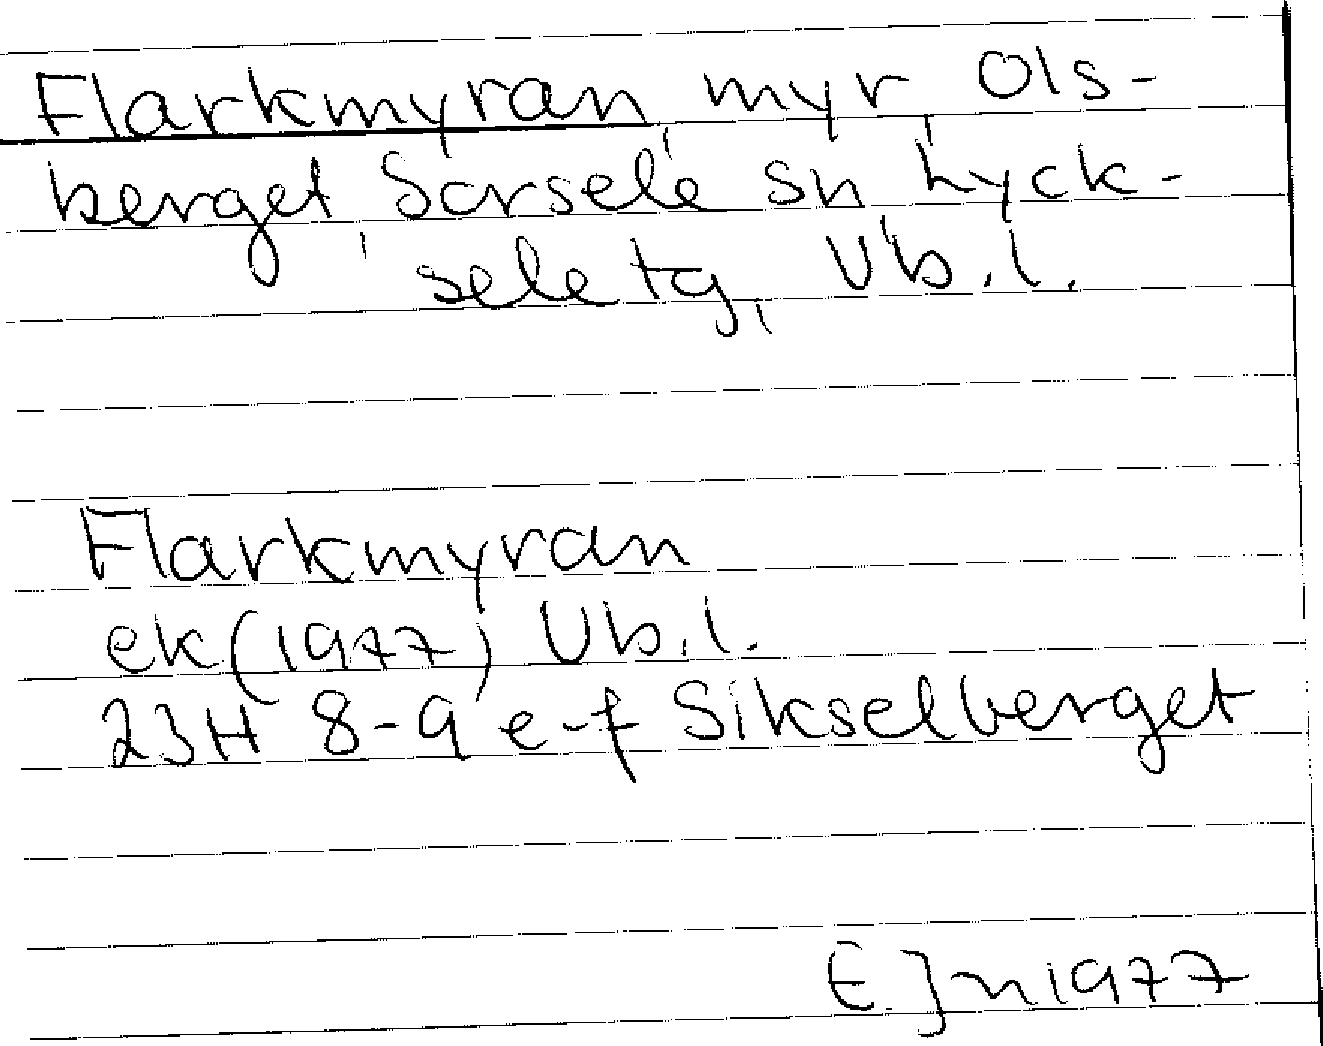 Flarkmyran myr Ols-
berget Sorsele sn Lyck-
sele tg, Vb.l.
Flarkmyran
ek (1977) Vb.l.
23H 8-9 e-f Sikselberget
E Jn 1977